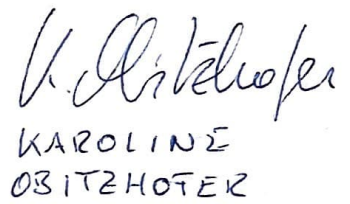 K. Obitzhofer
KAROLINE
OBITZHOFER